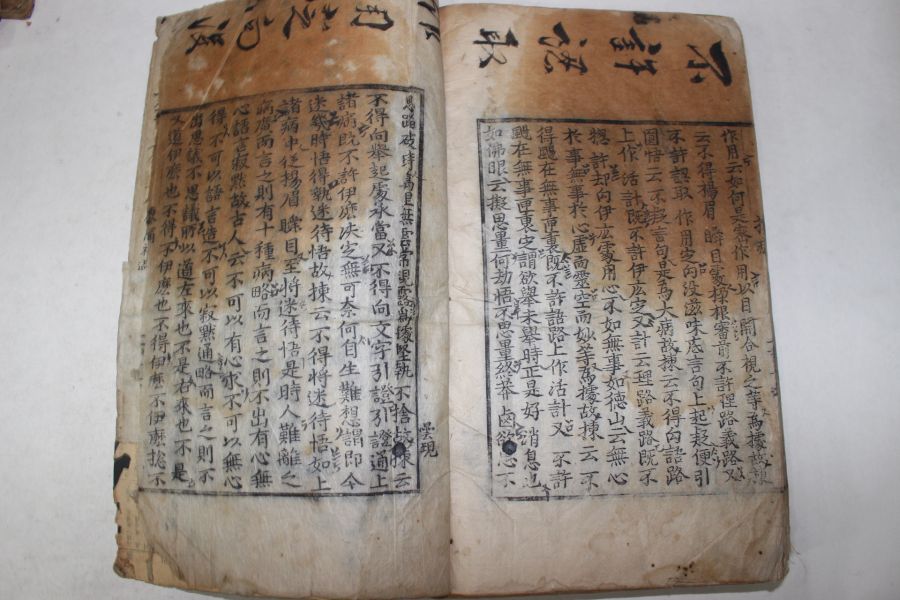 不許認取
作用定向没
作用云如何是密作用以目開合視之等爲據故揀
云不得楊眉瞬目處挅根審前不許理路義路又
不許認取作用定向没滋味底言句上起疑便引
圜悟云不疑言句是爲大病故揀云不得向語路
上作活計旣不許伊庅定又計云理路義路旣不
揔許却向伊庅處用心不如無事如德山云無心
於事無事於心虛而靈空而妙等爲據故揀云不
得颺在無事匣裏旣不許語路上作活計又不許
颺在無事匣裏定謂欲擧未擧時正是好消息也
如佛眼云擬思量何劫悟不思量終莽鹵欲思不
思路破時萬里無雲常現露爲據堅執不捨故揀云
曇現
不得向擧起處承當又不得向文字引證引證通上
諸病旣不許伊庅決定無可奈何自生難想謂即今
迷幾時悟得執迷待悟故揀云不得將迷待悟如上
諸病中從楊眉瞬目至將迷待悟是時人難離之
病廣而言之則有十種病略而言之則不出有心無
心語言寂默故古人云不可以有心求不可以無心
得不可以語言造不可以寂默通略而言之則不
出思議不思議所以道左來也不是右來也不是
又道伊麽也不得不伊麽也不得伊麽不伊麽揔不